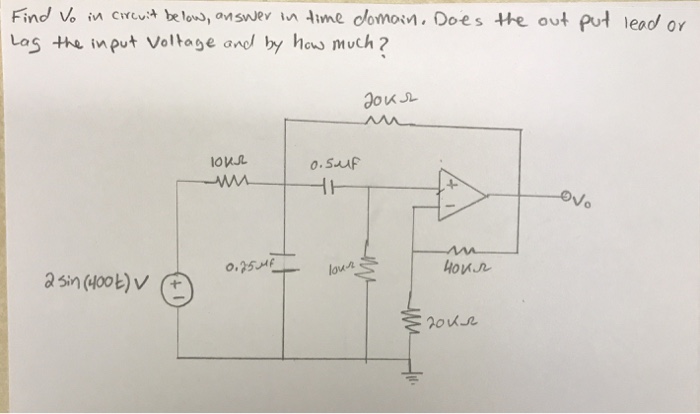 Find Vo in circuit below, answer in time domain. Does the out put lead or
Lag the input Voltage and by how much?
20KΩ
10KΩ
0.5uF
+
-
Vo
0.25uF
10KΩ
40KΩ
2 sin(400t) V
+
-
20KΩ